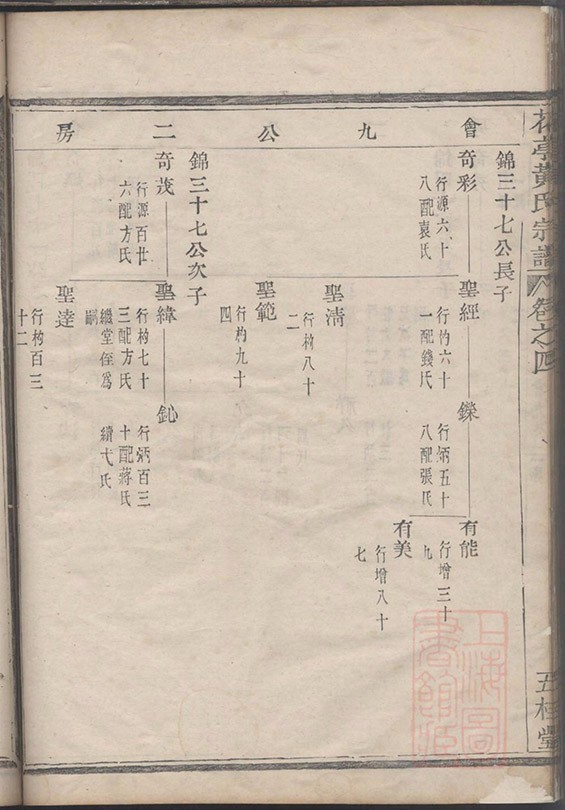 黃氏宗譜
卷之四
五桂堂
會九公二房
錦三十七公長子
奇彩
行源六十
八配袁氏
聖經
行杓六十
一配錢氏
鑠
行炳五十
八配張氏
有能
行增三十
九
有美
行增八十
七
聖淸
行杓八十
二
聖範
行杓九十
四
錦三十七公次子
奇茂
行源百廿
六配方氏
聖緯
行杓七十
三配方氏
繼堂侄爲
嗣
行炳百三
十配蔣氏
續弋氏
聖逹
行杓百三
十二
上海圖書館